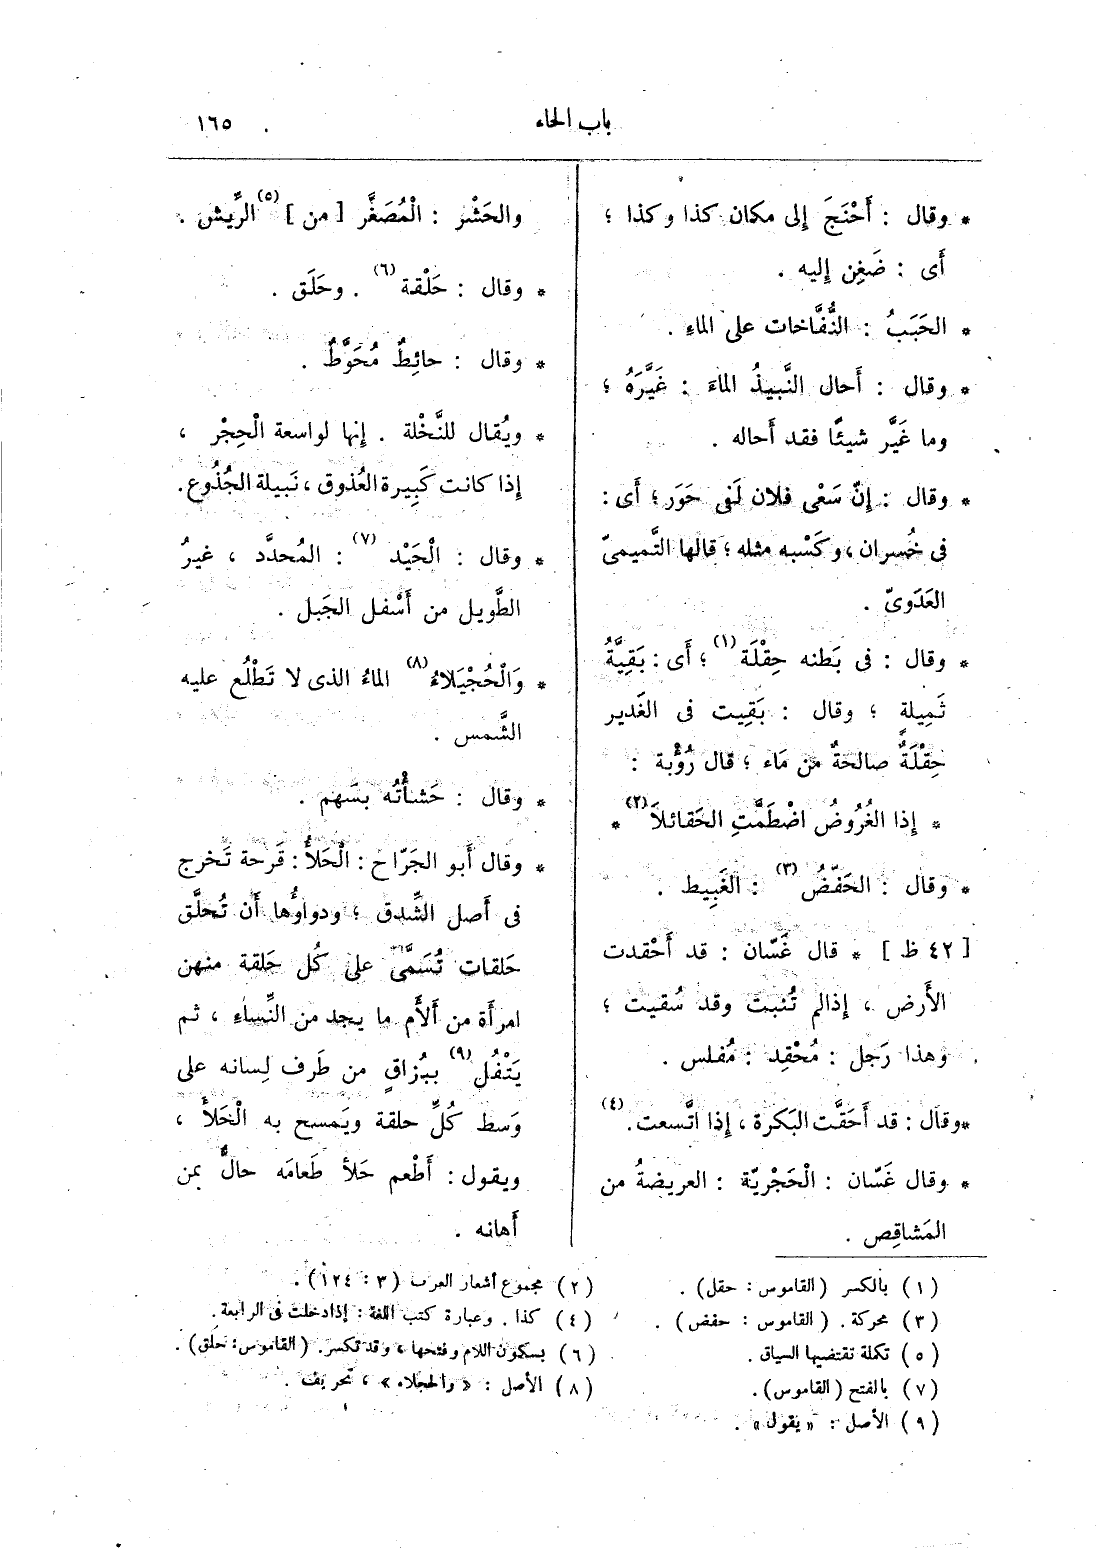 باب الحاء ١٦٥
* وقال : أَحْنَجَ إلى مكان كذا وكذا ؛
أى : ضَغِن إليه .
* الحَبَبُ : النُّفَّاخات على الماءِ .
* وقال : أَحال النَّبيذُ الماءَ : غَيَّرَهُ ؛
وما غَيَّر شيئًا فقد أَحاله .
* وقال : إنّ سَعْى فلان لَفى حَوَر ؛ أى :
فى خُسران ، وكَسْبه مثله ؛ قالها التَّميمىّ
العَدَوىّ .
* وقال : فى بَطنه حِقْلَة (١) ؛ أى : بَقِيَّةُ
ثَمِيلةٍ ؛ وقال : بَقِيت فى الغَدير
حِقْلَةٌ صالحةٌ من مَاء ؛ قال رُؤْبة :
* إذا الغُرُوضُ اضْطَمَّتِ الحَقائلاَ (٢) *
* وقال : الحَفَضُ (٣) : الغَبِيط .
[ ٤٢ ظ ] * قال غَسّان : قد أَحْقدت
الأَرض ، إذالم تُنبت وقد سُقيت ؛
وهذا رَجل : مُحْقِد : مُفلس .
* وقال : قد أَحَقَّت البَكرة ، إذا اتَّسعت. (٤)
* وقال غَسّان : الْحَجْريّة : العريضةُ من
المَشاقِص .
والحَشْر : الْمُصَغَّر [ من ] (٥) الرِّيش .
* وقال : حَلْقة (٦) . وحَلَق .
* وقال : حائِطٌ مُحَوَّطٌ .
* ويُقال للنَّخْلة . إنها لواسعة الْحِجْر ،
إذا كانت كَبِيرة العُذوق ، نَبيلة الجُذُوع.
* وقال : الْحَيْد (٧) : المُحدَّد ، غيرُ
الطَّويل من أَسْفل الجَبل .
* وَالْحُجْيَلاءُ (٨) الماءُ الذى لا تَطْلُع عليه
الشَّمس .
* وقال : حَشأْتُه بسَهم .
* وقال أَبو الجَرّاح : الْحَلأُ : قَرحة تَخرج
فى أَصل الشِّدق ؛ ودواؤُها أَن تُحلَّق
حَلقات تُسَمَّى على كُل حَلقة منهن
امرأَة من أَلأَم ما يجد من النِّساءِ ، ثم
يَتْفُل (٩) ببُزاقٍ من طَرف لِسانه على
وَسط كُلِّ حلقة ويَمسح به الْحَلأَ ،
ويقول : أَطْعم حَلأ طَعامَه حالٌّ بمن
أَهانه .
(١) بالكسر (القاموس : حقل) .
(٢) مجموع أشعار العرب (٣ : ١٢٤) .
(٣) محركة . (القاموس : حفض) .
(٤) كذا . وعبارة كتب اللغة : إذا دخلت فى الرابعة .
(٥) تكلة تقتضيها السياق .
(٦) بسكون اللام وفتحها ، وقد تكسر. (القاموس : حلق) .
(٧) بالفتح (القاموس) .
(٨) الأصل : « والحجلاء » ، تحريف .
(٩) الأصل : « يقول» .